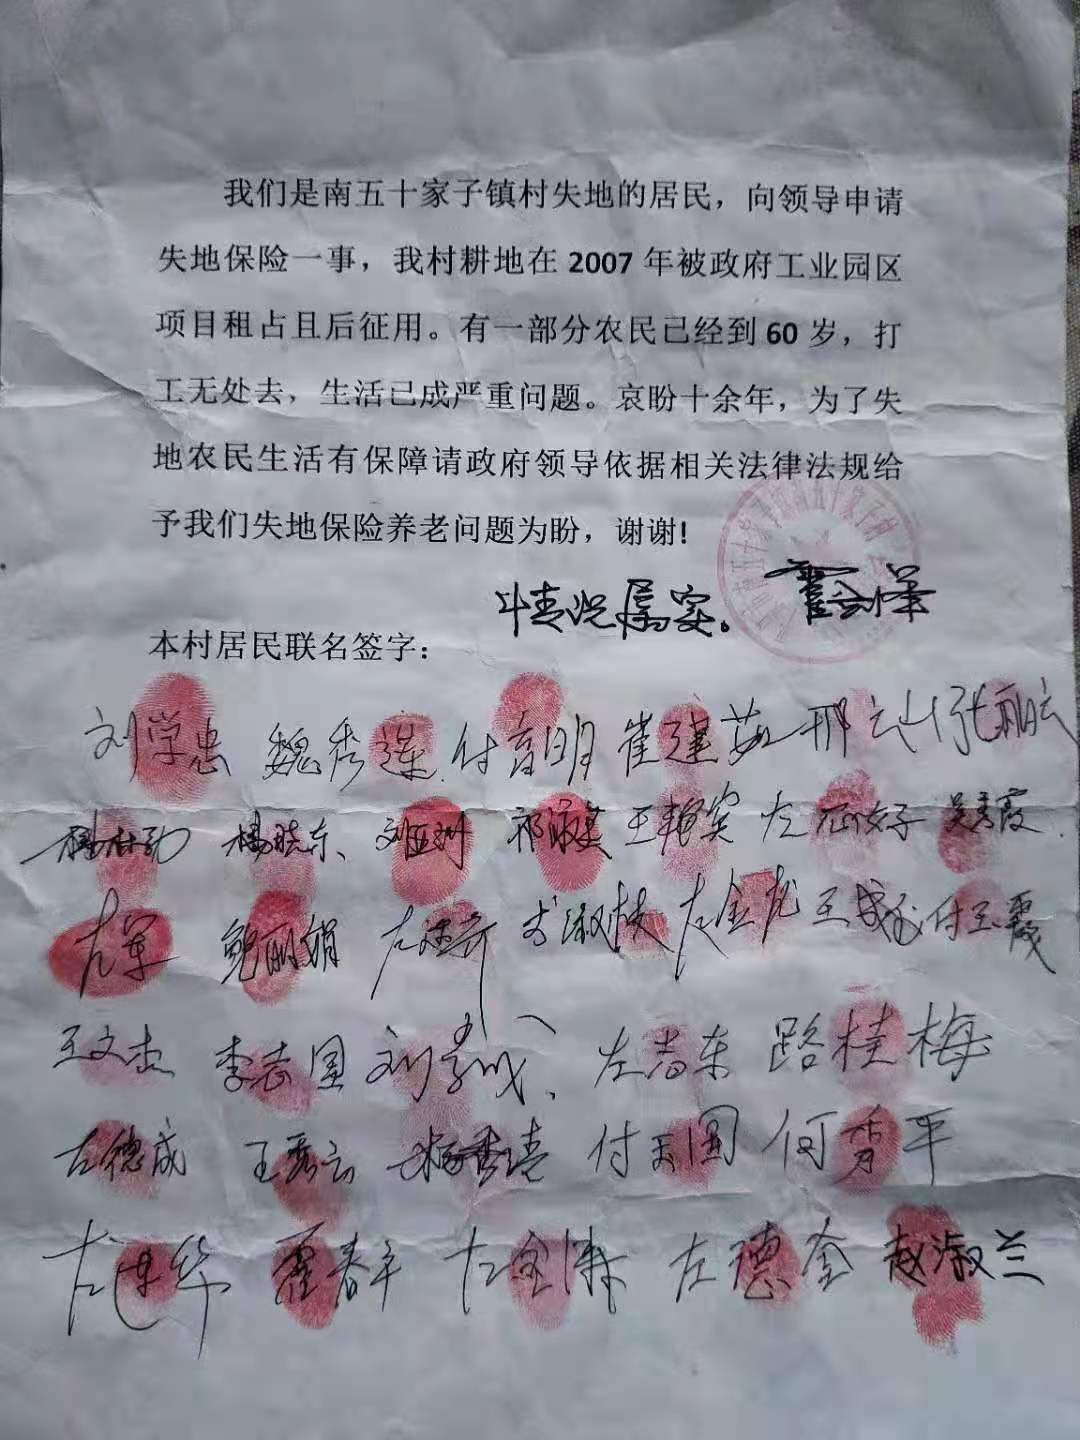 我们是南五十家子镇村失地的居民，向领导申请
失地保险一事，我村耕地在 2007 年被政府工业园区
项目租占且后征用。有一部分农民已经到 60 岁，打
工无处去，生活已成严重问题。哀盼十余年，为了失
地农民生活有保障请政府领导依据相关法律法规给
予我们失地保险养老问题为盼，谢谢!
情况属实。
本村居民联名签字：
刘学忠 魏秀莲 付育明 崔莲茹 邢 张丽云
杨晓东、 刘亚洲 祁淑美 王艳宾 吴秀霞
左军 鲍丽娟 左 淑枝 左金龙 王成 付玉霞
王文杰 李志国 刘 左志东 路桂梅
左德成 王秀云 杨秀清 付天国 何秀平
左 华 霍春辛 左金 左德奎 赵淑兰